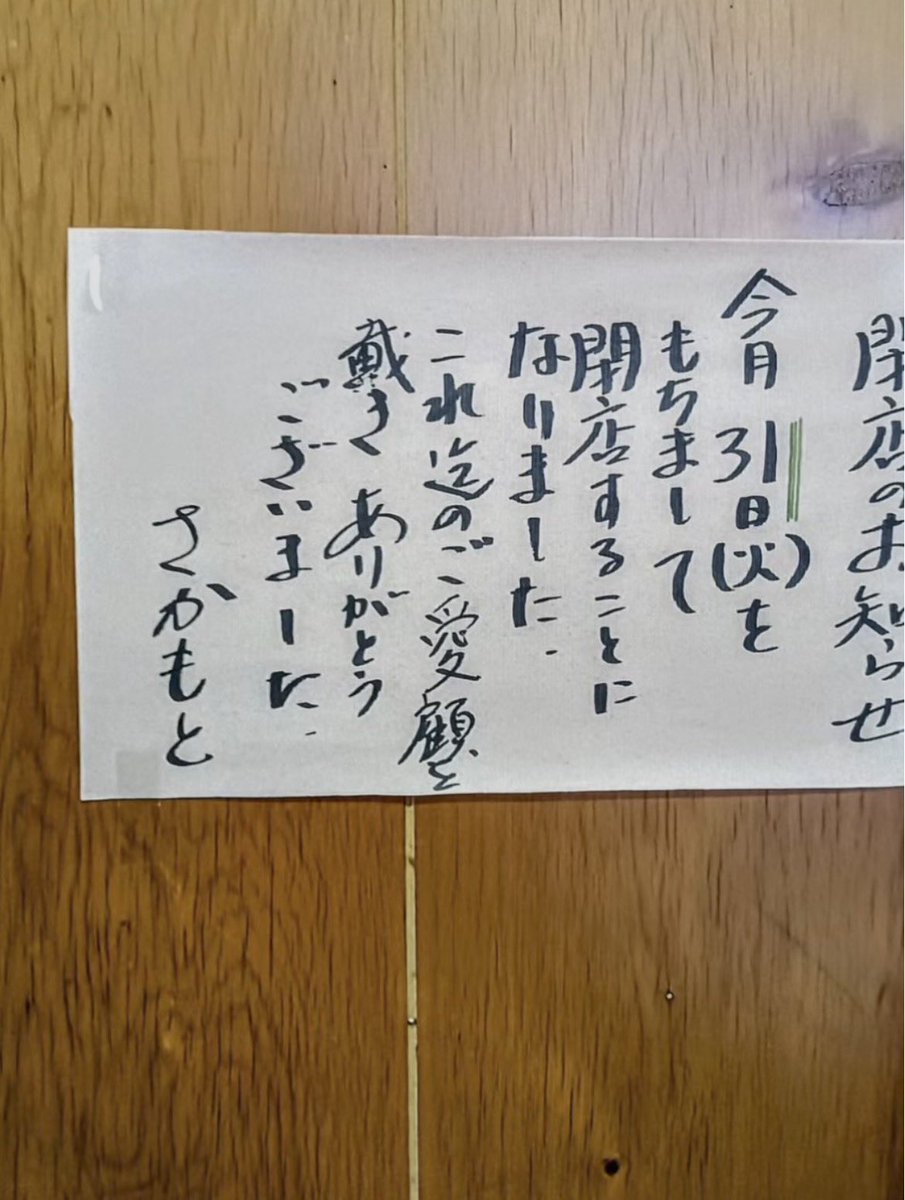 閉店のお知らせ
今月31日(火)を
もちまして
閉店することに
なりました.
これ迄のご愛顧を
戴き ありがとう
ございました.
さかもと